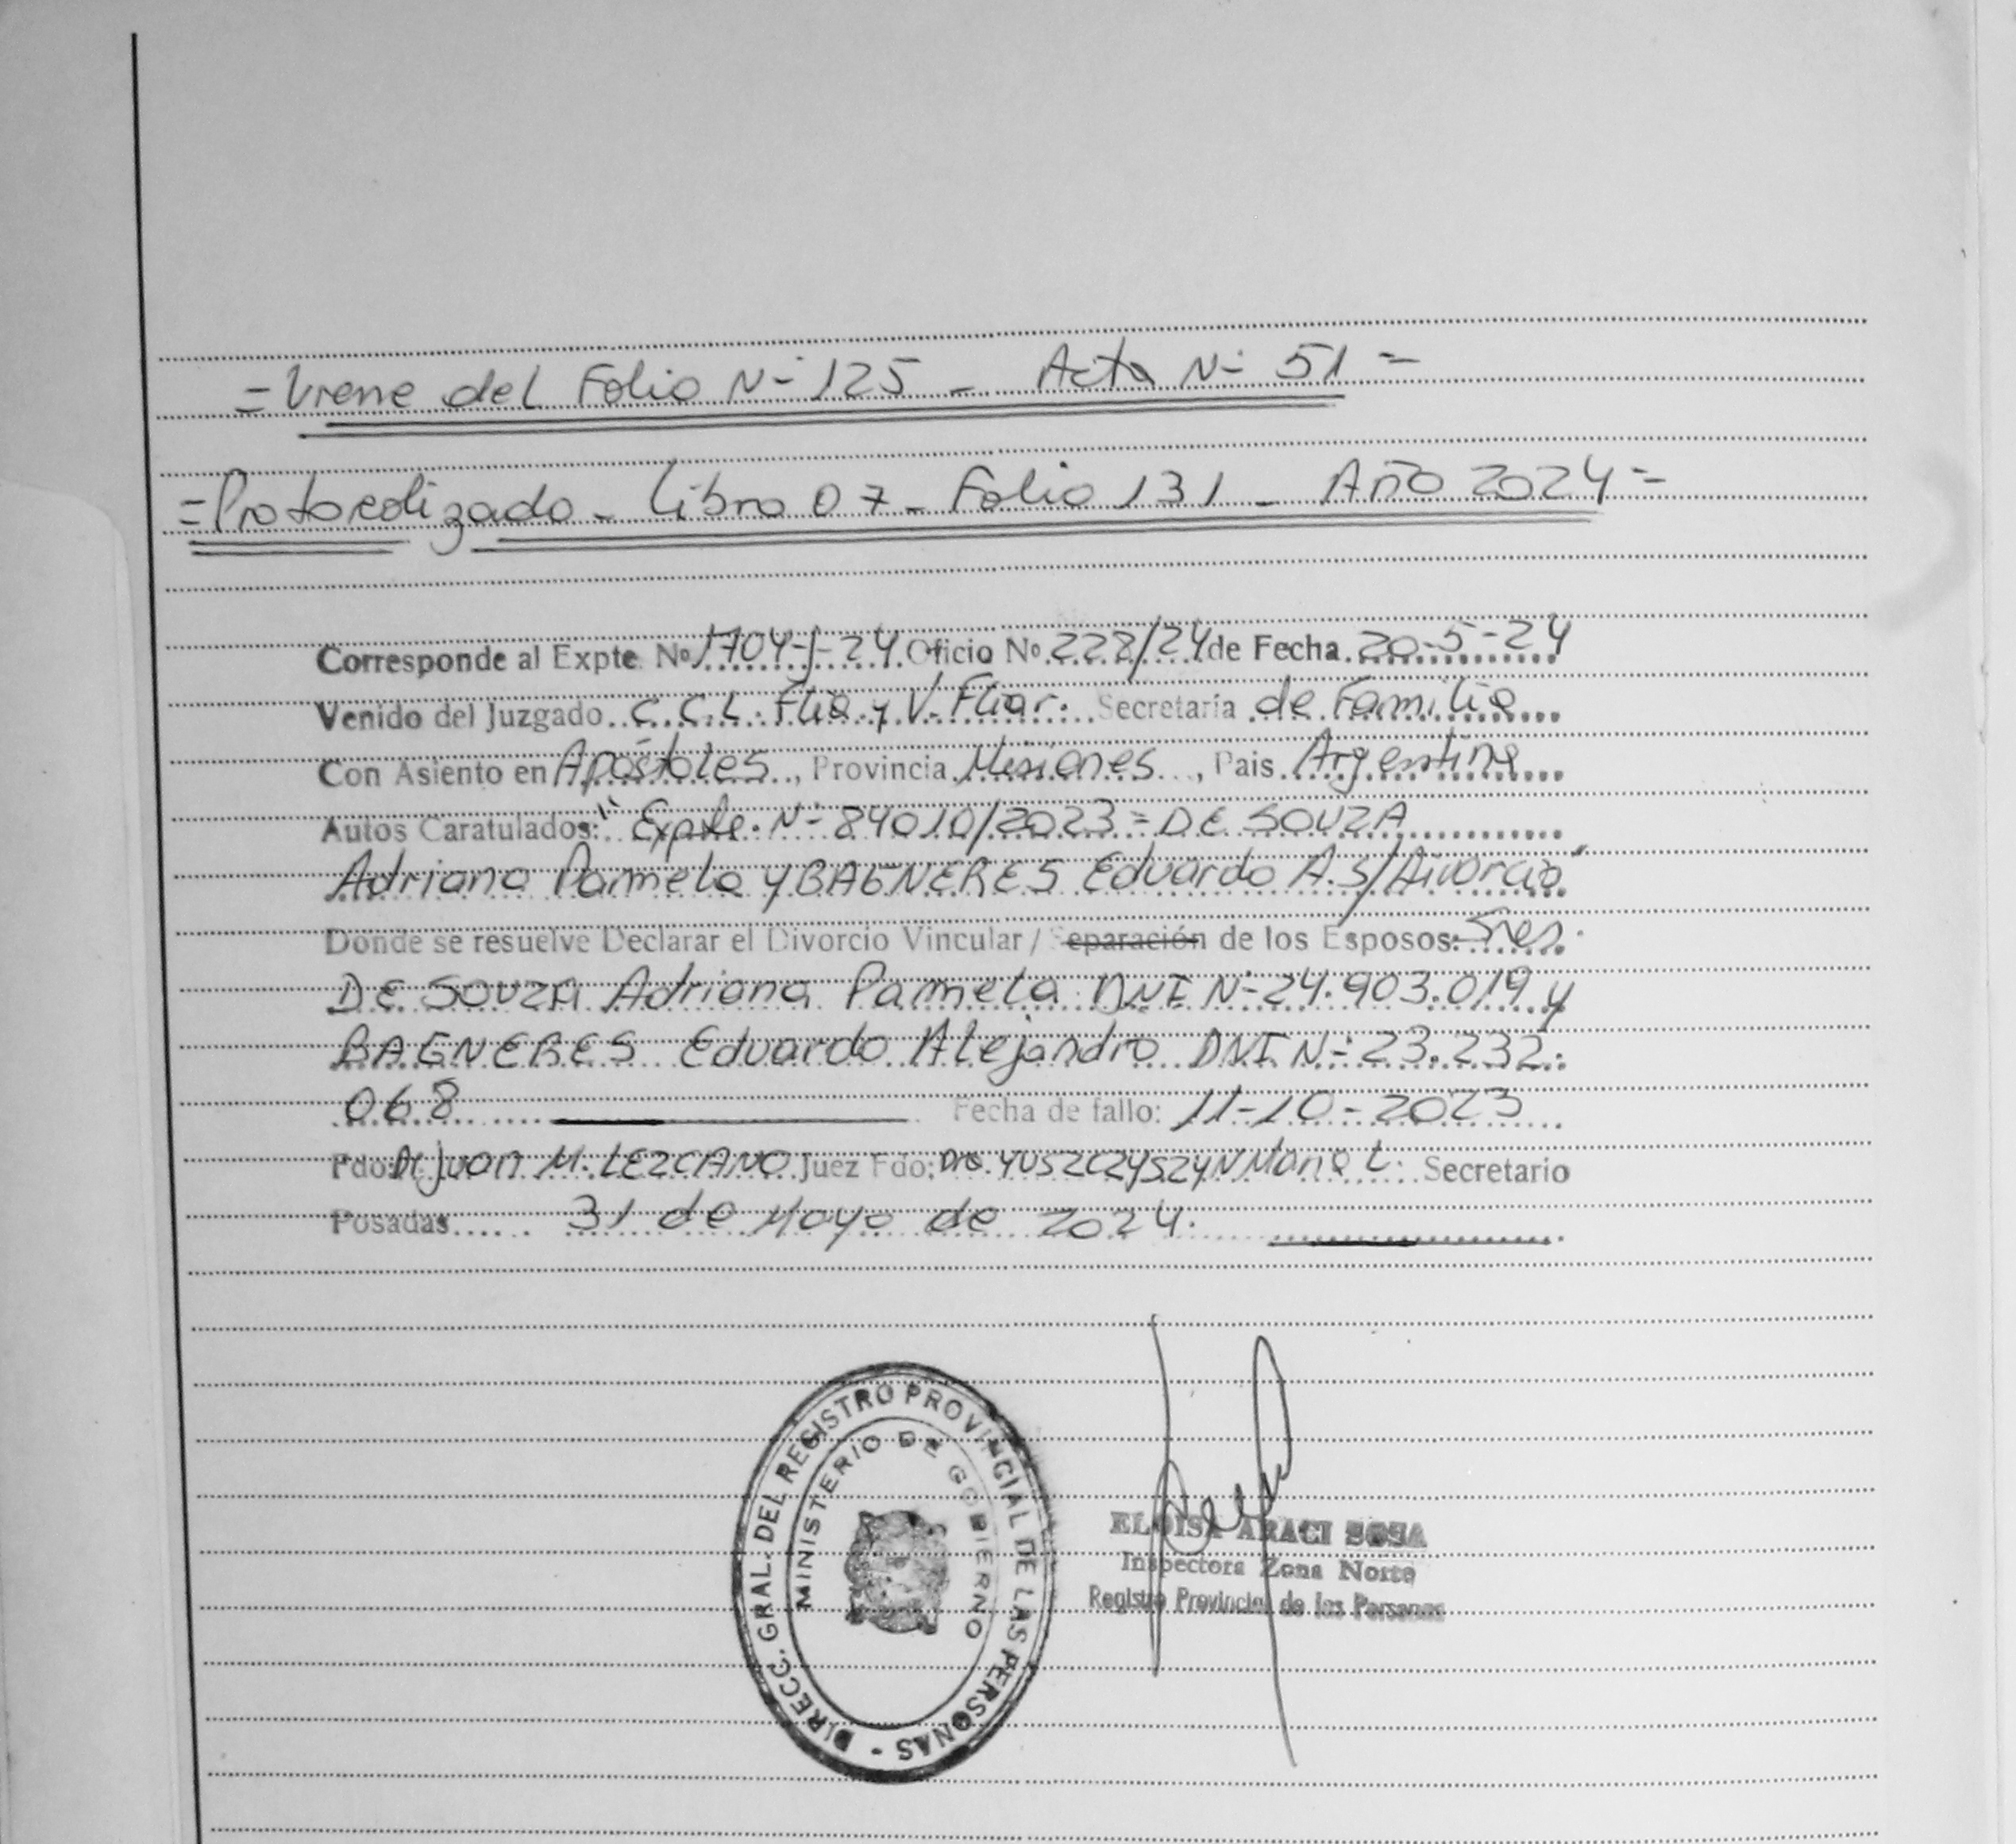 = Viene del Folio N- 125 - Acta N- 51 =
= Protocolizado - Libro 07 - Folio 131 - Año 2024 =
Corresponde al Expte. Nº 1704-J-24 Oficio Nº 228/24 de Fecha 20-5-24
Venido del Juzgado C.C.L. Flia y V. Fliar. Secretaría de Familia
Con Asiento en Apóstoles, Provincia Misiones, Pais Argentina
Autos Caratulados: "Expte. N- 84010/2023 = DE SOUZA
Adriana Pamela y BAGNERES Eduardo A. S/Divorcio"
Donde se resuelve Declarar el Divorcio Vincular / Separación de los Esposos: Sres.
DE SOUZA Adriana Pamela DNI N- 24.903.019 y
BAGNERES Eduardo Alejandro DNI N- 23.232.
068 Fecha de fallo: 11-10-2023
Fdo: Dr Juan M. LEZCANO Juez Fdo: Dra. Maria L. Secretario
Posadas 31 de Mayo de 2024.
DIRECC. GRAL. DEL REGISTRO PROVINCIAL DE LAS PERSONAS -
MINISTERIO DE GOBIERNO
ELOISA ARACI SOSA
Inspectora Zona Norte
Registro Provincial de las Personas